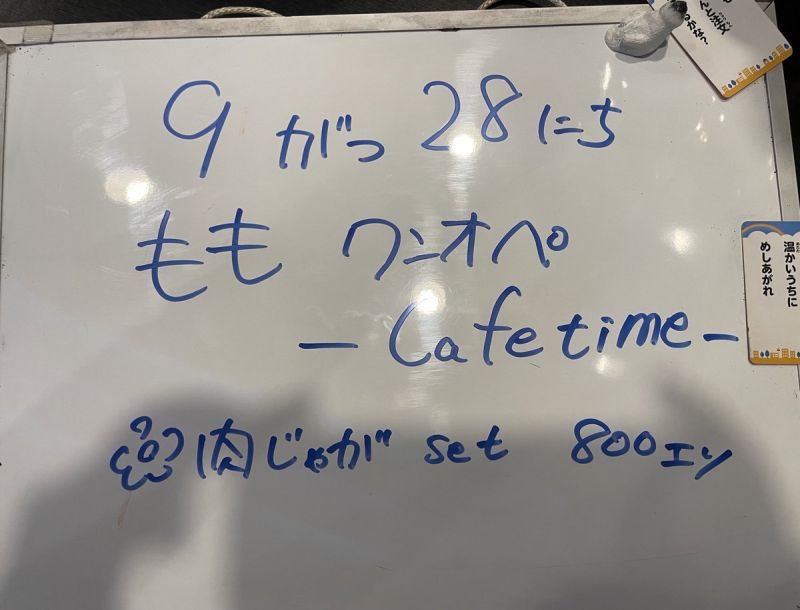 9 がつ 28 にち
もも ワンオペ
– Cafe time –
肉じゃが set 800エン
温かいうちに
めしあがれ